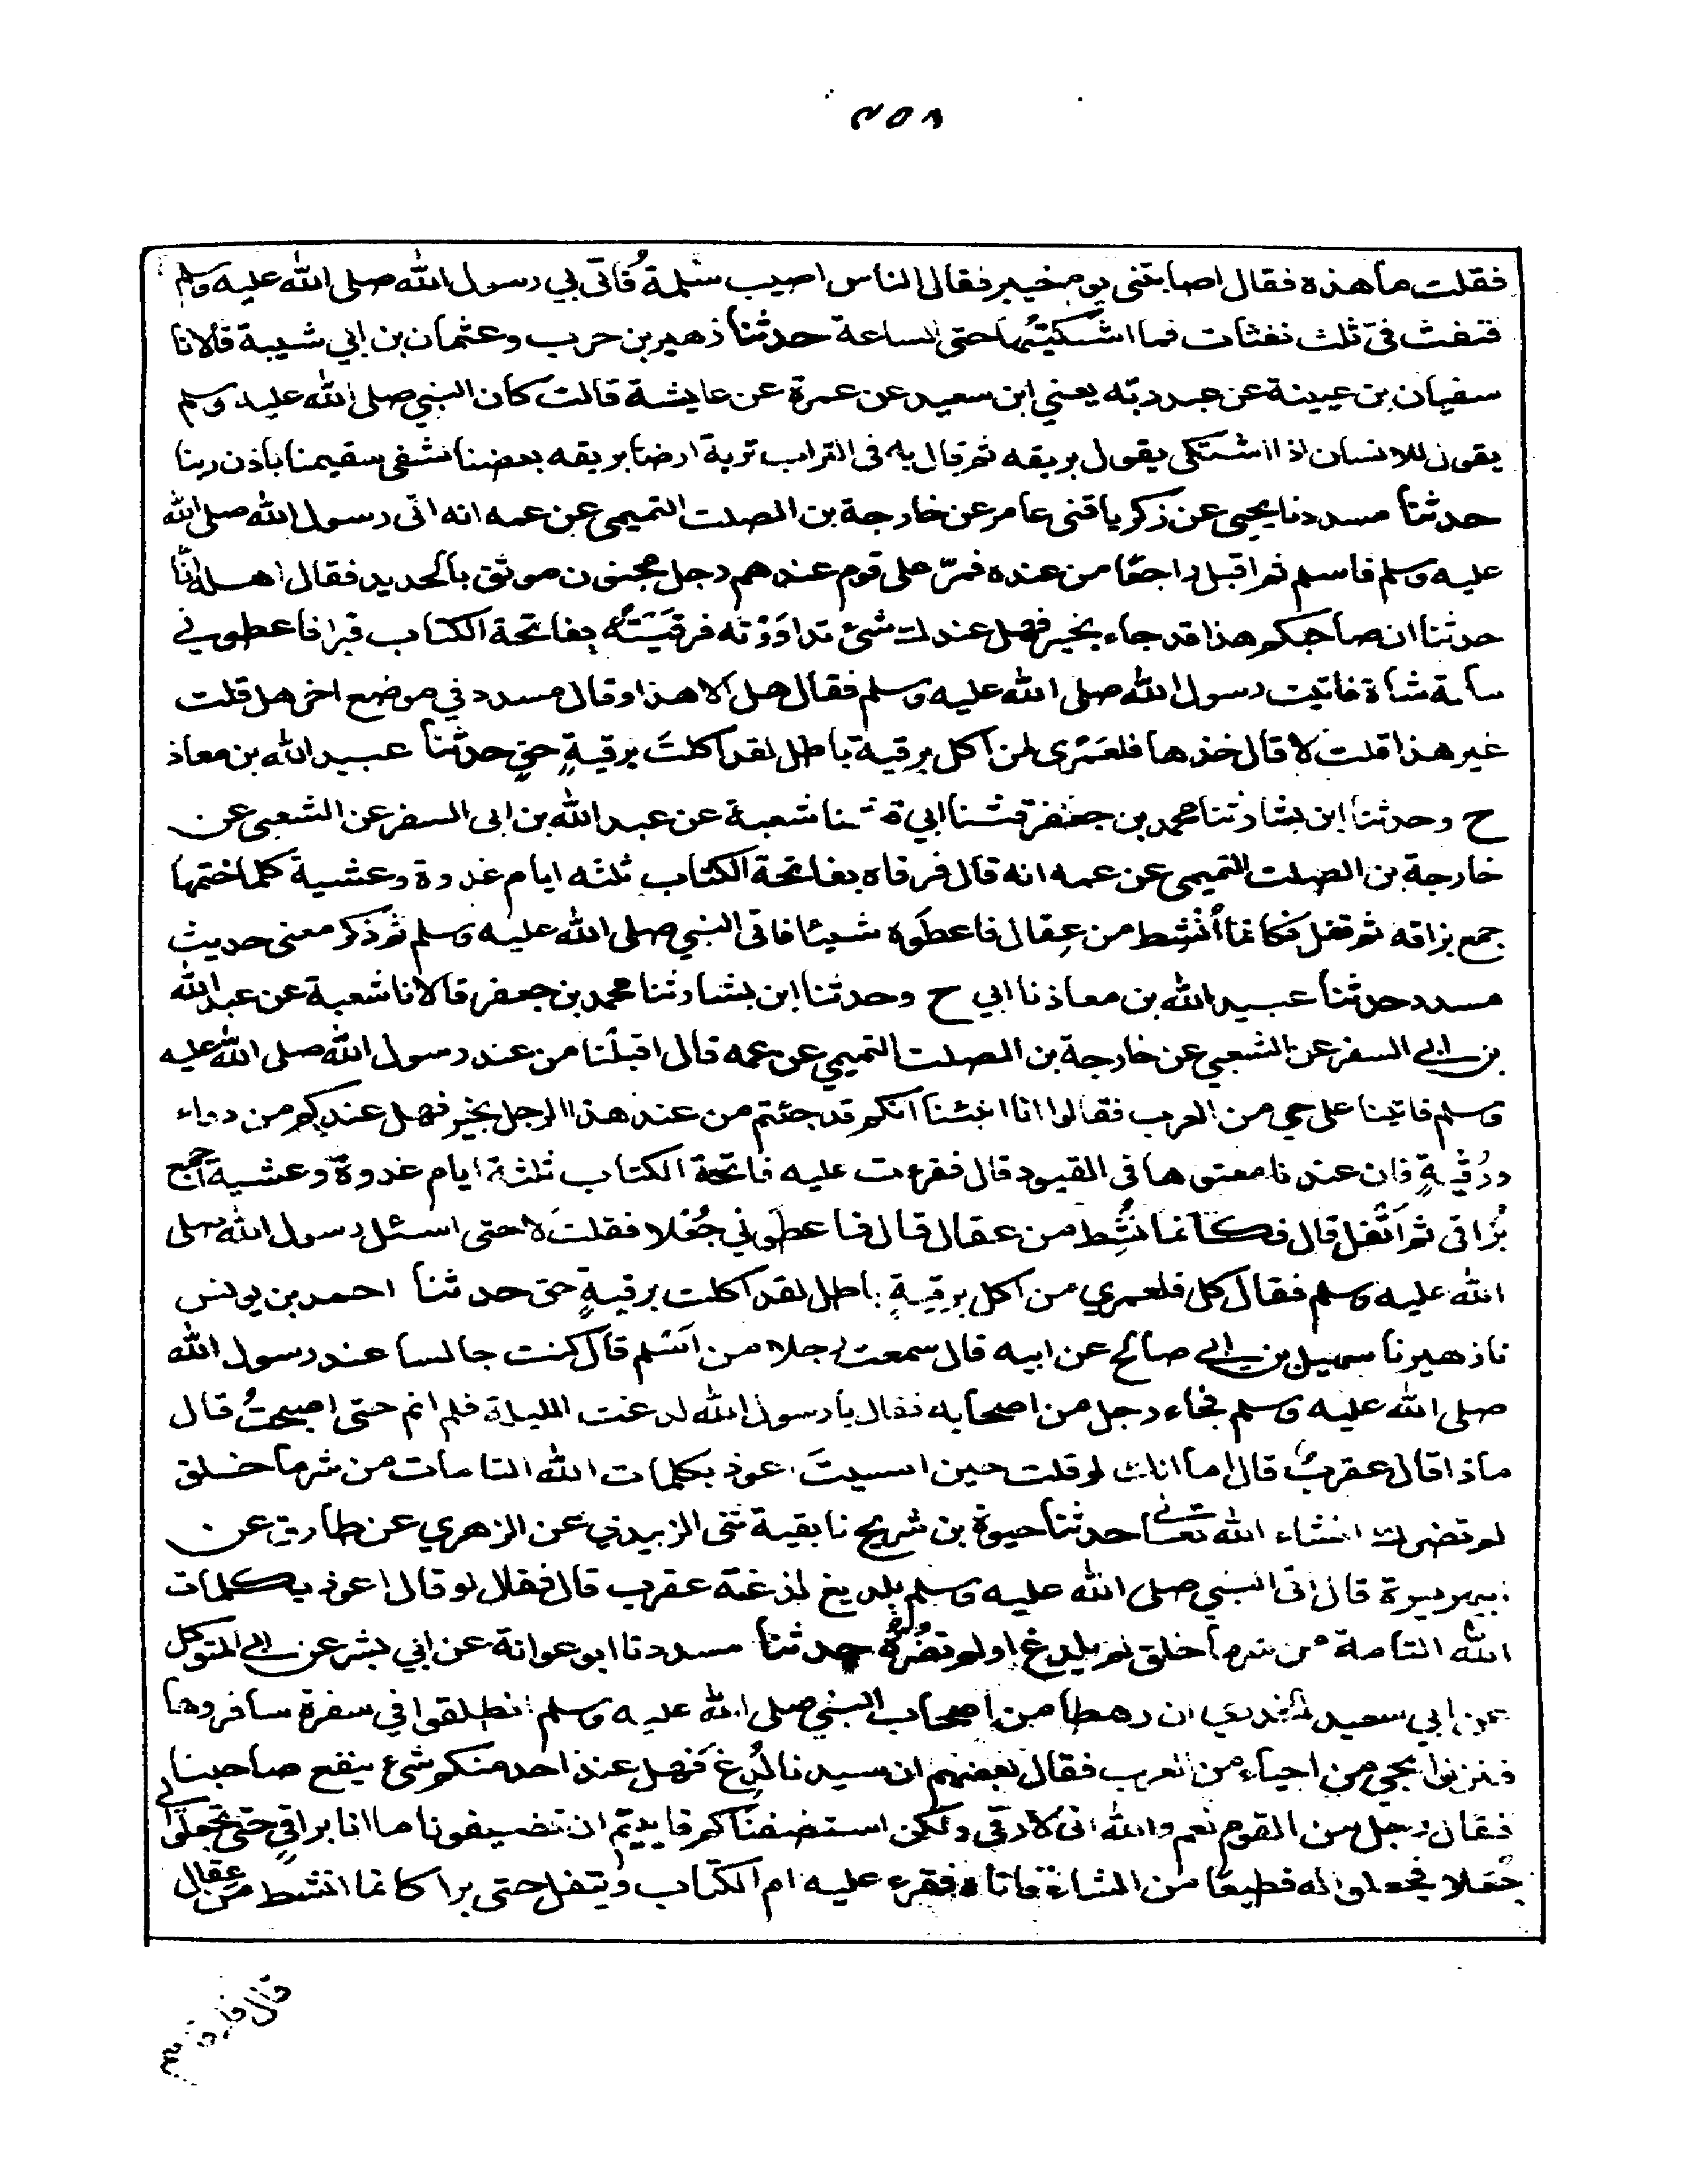 ٢٥٨
فقلت ما هذه فقال اصابتنى يوم خيبر فقال الناس اصيب سلمة فأتى بي رسول الله صلى الله عليه وسلم
فنفث فىّ ثلث نفثات فما اشتكيتها حتى الساعة حدثنا زهير بن حرب وعثمان بن ابي شيبة قالا نا
سفيان بن عيينة عن عبد ربه يعني ابن سعيد عن عمرة عن عايشة قالت كان النبي صلى الله عليه وسلم
يقول للانسان اذا اشتكى يقول بريقه ثم قال به فى التراب تربة ارضنا بريقه بعضنا نشفى سقيمنا باذن ربنا
حدثنا مسدد نا يحيى عن زكريا قثنى عامر عن خارجة بن الصلت التميمى عن عمه انه اتى رسول الله صلى الله
عليه وسلم فاسلم ثم اقبل راجعًا من عنده فمرّ على قوم عندهم رجل مجنون موثق بالحديد فقال اهله انّا
حدثنا ان صاحبكم هذا قد جاء بخير فهل عندك شئ تداوونه فرقيته بفاتحة الكتاب فبرا فاعطوني
ماية شاة فاتيت رسول الله صلى الله عليه وسلم فقال هل الا هذا وقال مسدد في موضع اخر هل قلت
غير هذا قلت لا قال خذها فلعمرى لمن اكل برقية باطل لقد اكلتَ برقيةٍ حقٍ حدثنا عبيد الله بن معاذ
ح وحدثنا ابن بشار ثنا محمد بن جعفر قثنا ابي ة ثنا شعبة عن عبد الله بن ابى السفر عن الشعبى عن
خارجة بن الصلت التميمى عن عمه انه قال فرقاه بفاتحة الكتاب ثلثه ايام غدوة وعشية كلما ختمها
جمع بزاقه ثم تفل فكانما أُنشِط من عِقال فاعطَوه شيئا فاتى النبي صلى الله عليه وسلم ثم ذكر معنى حديث
مسدد حدثنا عبيد الله بن معاذ نا ابي ح وحدثنا ابن بشار ثنا محمد بن جعفر قالا نا شعبة عن عبد الله
بن ابي السفر عن الشعبي عن خارجة بن الصلت التميمي عن عمه قال اقبلْنا من عند رسول الله صلى الله عليه
وسلم فاتينا على حي من العرب فقالوا انا انبئنا انكم قد جئتم من عند هذا الرجل بخير فهل عندكم من دواء
ورُقْيةٍ فان عندنا معتوها فى القيود قال فقرءت عليه فاتحة الكتاب ثلثة ايام غدوة وعشية اجمع
بُزاقى ثم اَتْفل قال فكانما نُشِط من عقال قال فاعطَوني جُعْلا فقلت لا حتى اسئل رسول الله صلى
الله عليه وسلم فقال كل فلعمري من اكل برقيةٍ باطل لقد اكلت برقيةٍ حق حدثنا احمد بن يونس
نا زهير نا سهيل بن ابي صالح عن ابيه قال سمعت رجلا من اسْلم قال كنت جالسا عند رسول الله
صلى الله عليه وسلم فجاء رجل من اصحابه فقال يا رسول الله لدغت الليلة فلم انم حتى اصبحتُ قال
ماذا قال عقربٌ قال اما انك لو قلت حين امسيتَ اعوذ بكلمات الله التامات من شر ما خلق
لم تضرك انشاء الله تعالى حدثنا حيوة بن شريح نا بقية ثنى الزبيدي عن الزهري عن طارق عن
ابي هريرة قال اتى النبي صلى الله عليه وسلم بلديغ لدغته عقرب قال فقال لو قال اعوذ بكلمات
الله التامة من شر ما خلق لم يلدغ او لم تضُرّه حدثنا مسدد نا ابو عوانة عن ابي بشر عن ابي المتوكل
عن ابي سعيد الخدري ان رهطا من اصحاب النبي صلى الله عليه وسلم انطلقوا في سفرة سافروها
فنزلوا بحي من احياء من العرب فقال بعضهم ان سيدنا لُدِغ فهل عند احد منكم شئ ينفع صاحبنا
فقال رجل من القوم نعم والله انى لارقى ولكن استضفناكم فابيتم ان تضيفونا ما انا براقٍ حتى تجعلوا لي
جُعْلا فجعلوا له قطيعًا من الشاء فاتاه فقرء عليه ام الكتاب ويتفل حتى برا كانما انشط من عِقال